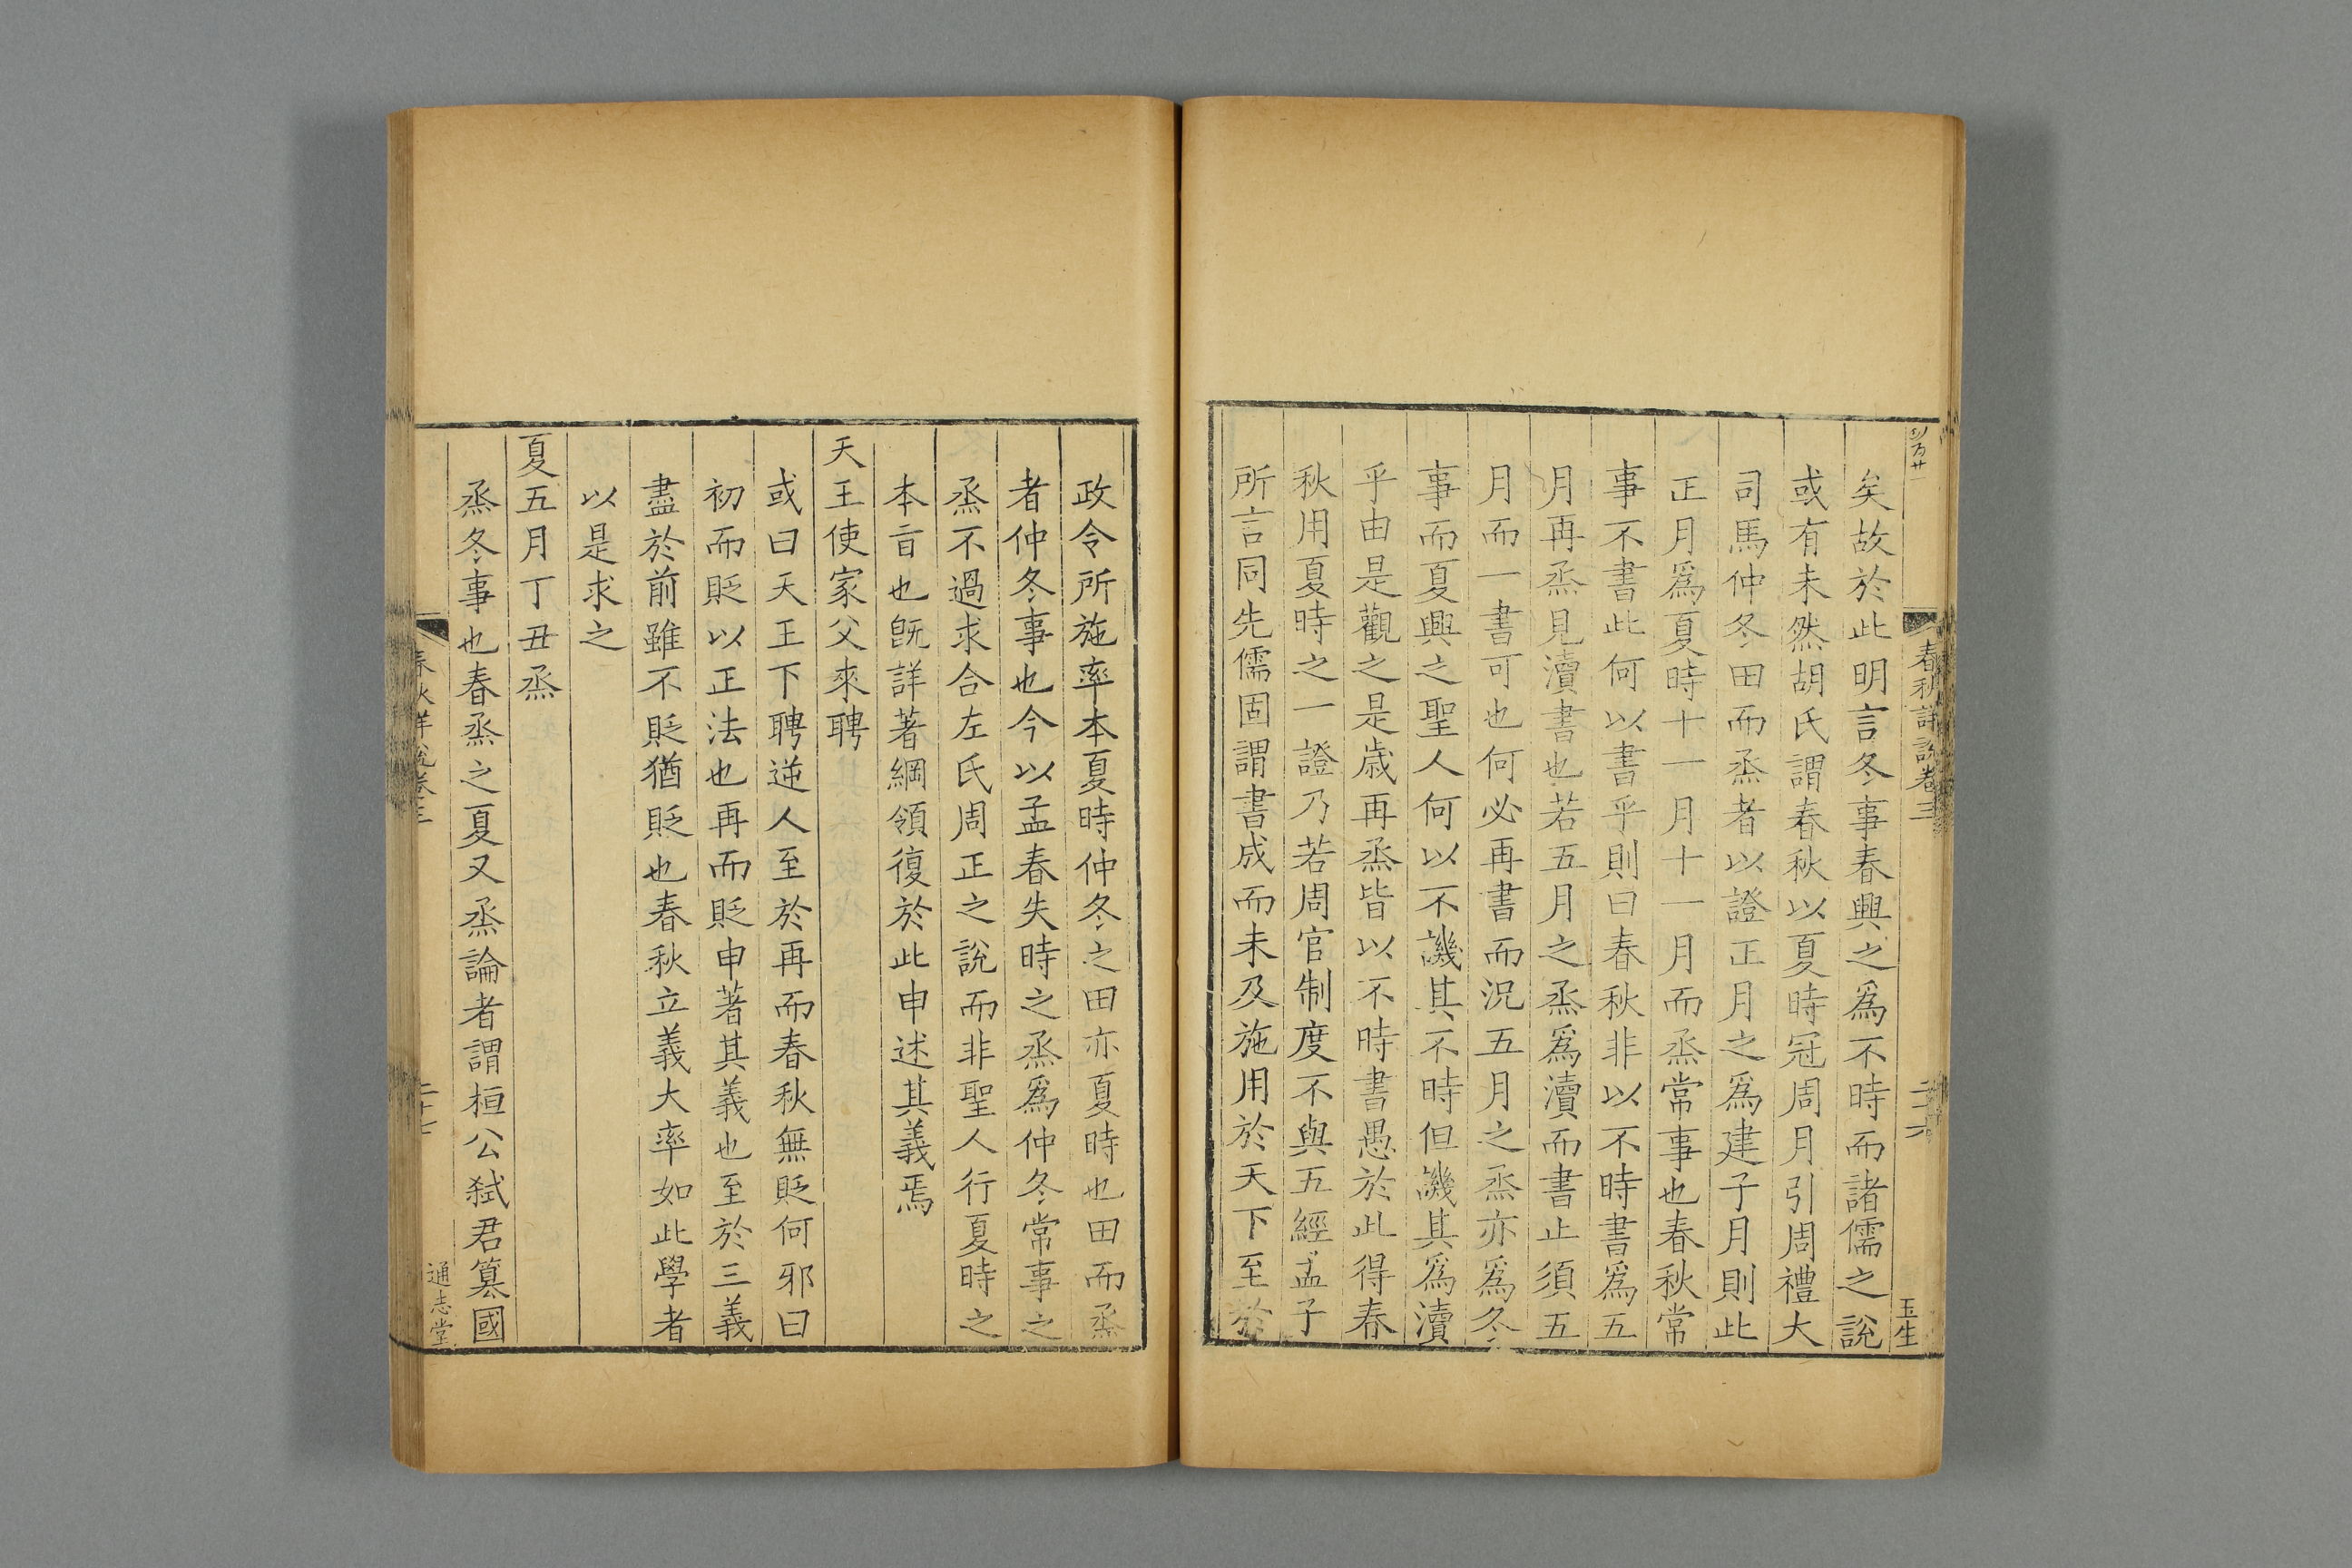 春秋詳說卷三
二十六
玉生
矣故於此明言冬事春興之爲不時而諸儒之說
或有未然胡氏謂春秋以夏時冠周月引周禮大
司馬仲冬田而烝者以證正月之爲建子月則此
正月爲夏時十一月十一月而烝常事也春秋常
事不書此何以書乎則曰春秋非以不時書爲五
月再烝見瀆書也若五月之烝爲瀆而書止須五
月而一書可也何必再書而況五月之烝亦爲冬
事而夏興之聖人何以不譏其不時但譏其爲瀆
乎由是觀之是歲再烝皆以不時書愚於此得春
秋用夏時之一證乃若周官制度不與五經孟子
所言同先儒固謂書成而未及施用於天下至於
政令所施率本夏時仲冬之田亦夏時也田而烝
者仲冬事也今以孟春失時之烝爲仲冬常事之
烝不過求合左氏周正之說而非聖人行夏時之
本旨也旣詳著綱領復於此申述其義焉
天王使家父來聘
或曰天王下聘逆人至於再而春秋無貶何邪曰
初而貶以正法也再而貶申著其義也至於三義
盡於前雖不貶猶貶也春秋立義大率如此學者
以是求之
夏五月丁丑烝
烝冬事也春烝之夏又烝論者謂桓公弑君簒國
春秋詳說卷三
二十七
通志堂